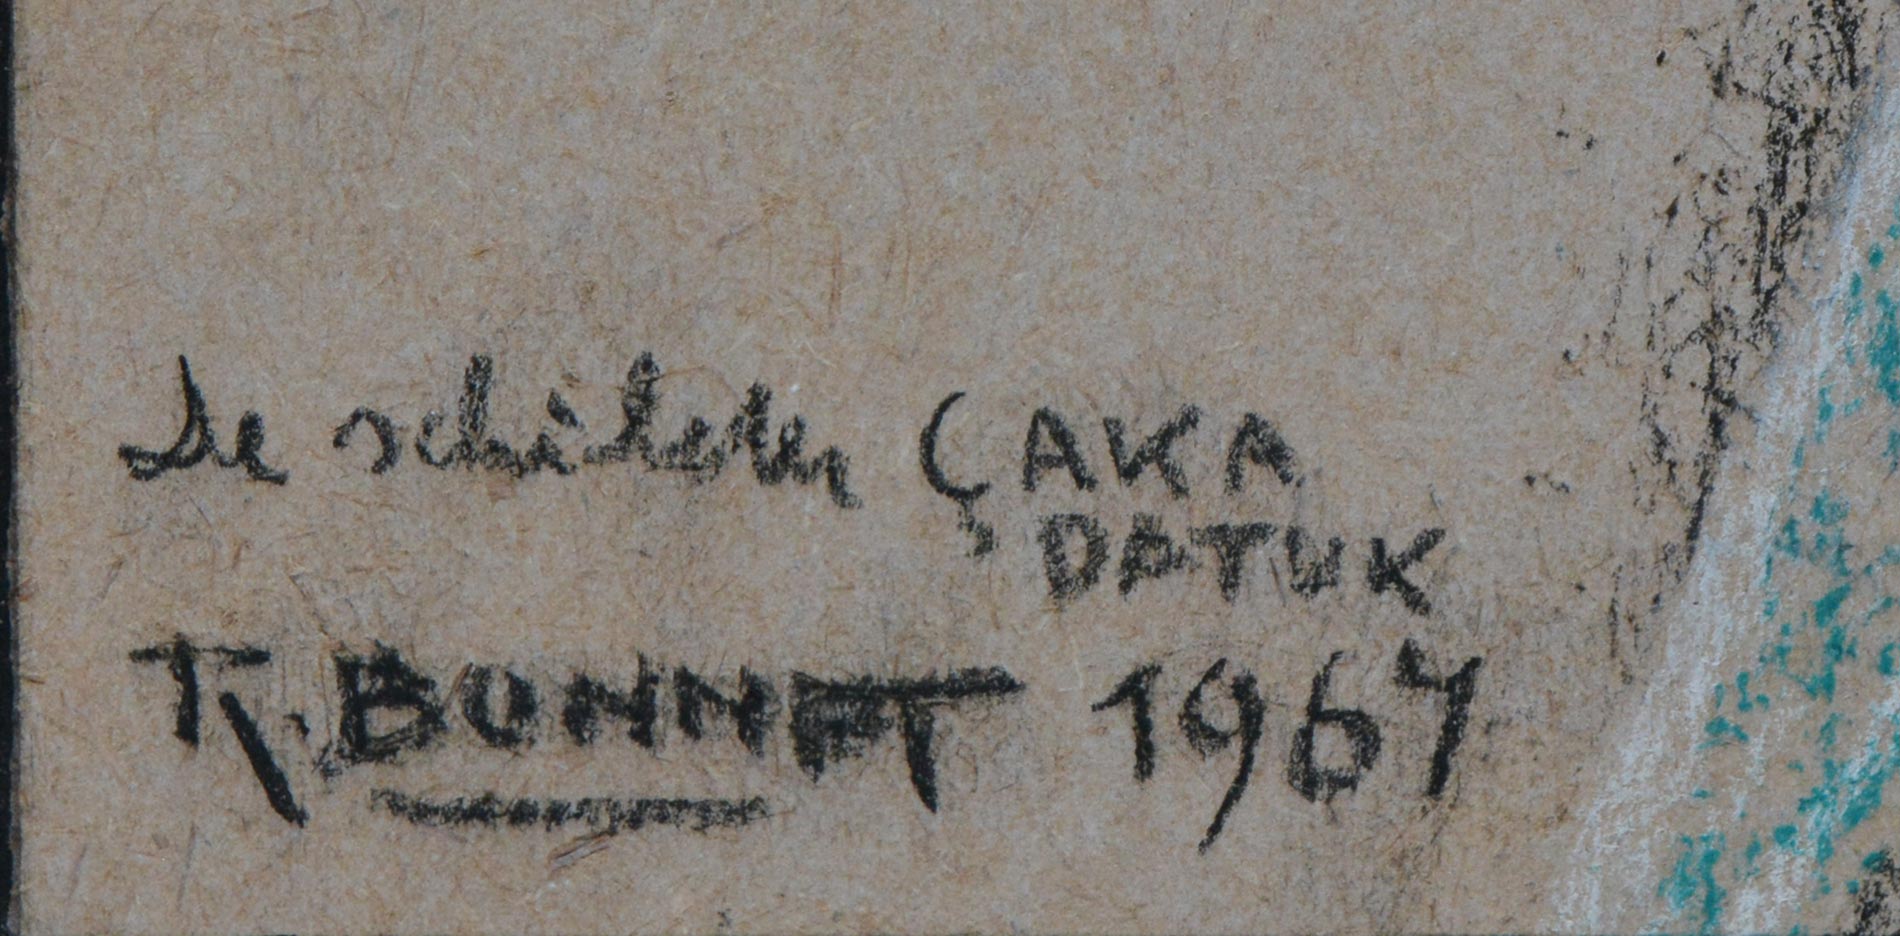 De schilder ÇAKA
DATUK
R. BONNET 1967